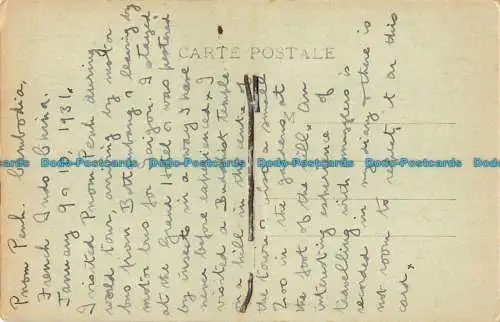 CARTE POSTALE
Pnom Penh. Cambodia,
French Indo China.
January 9 & 10, 1931.
I visited Pnom Penh during
world tour arriving by motor
bus from Battambang & leaving by
motor bus for Saigon. I stayed
at the Grand Hotel & was pestered
by insects in a way I have
never before experienced. I
visited a Buddhist temple
on a hill in the centre of
the town & also a small
Zoo in the gardens at
the foot of the hill. An
interesting experience of
travelling with smugglers is
recorded in my diary & there is
not room to repeat it on this
card.
Dodo-Postcards Dodo-Postcards Dodo-Postcards Dodo-Postcards